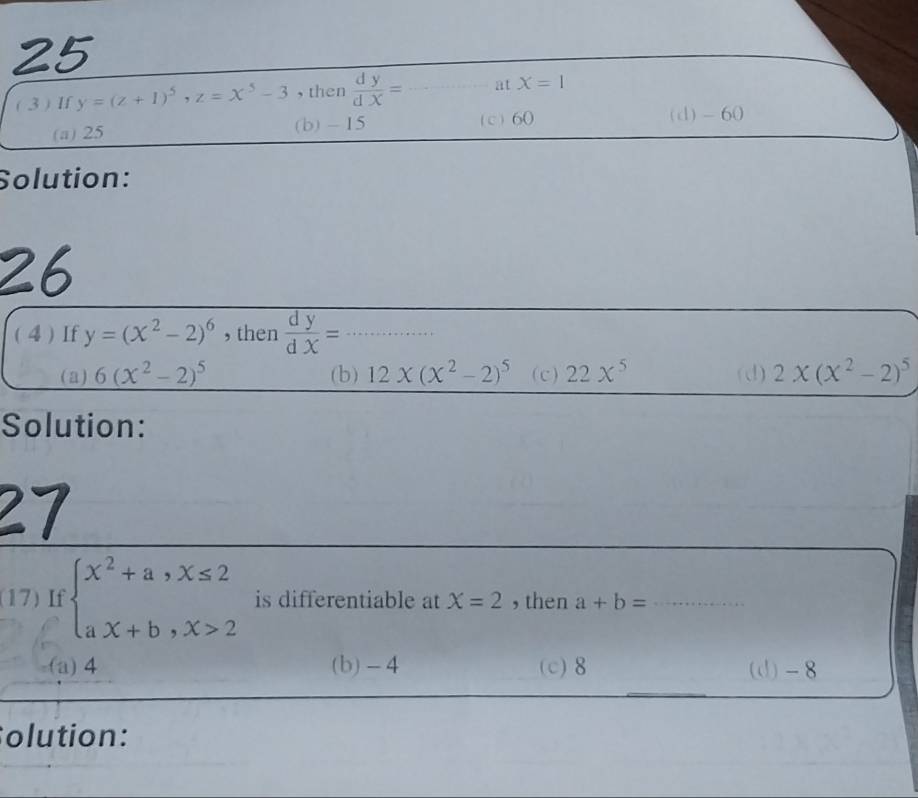 25
(3) If y = (z + 1)⁵ , z = X⁵ – 3 , then dy/dX = ............... at X = 1
(a) 25 (b) – 15 (c) 60 (d) – 60
Solution:
26
(4) If y = (X² – 2)⁶ , then dy/dX = ...............
(a) 6 (X² – 2)⁵ (b) 12 X (X² – 2)⁵ (c) 22 X⁵ (d) 2 X (X² – 2)⁵
Solution:
27
(17) If { X² + a , X ≤ 2
a X + b , X > 2 is differentiable at X = 2 , then a + b = ...............
(a) 4 (b) – 4 (c) 8 (d) – 8
olution: